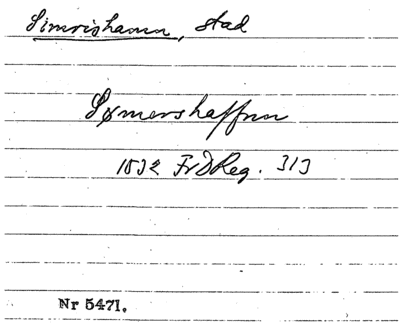 Simrishamn, stad
Sømershaffnn
1532 FrdReg. 313
Nr 5471.